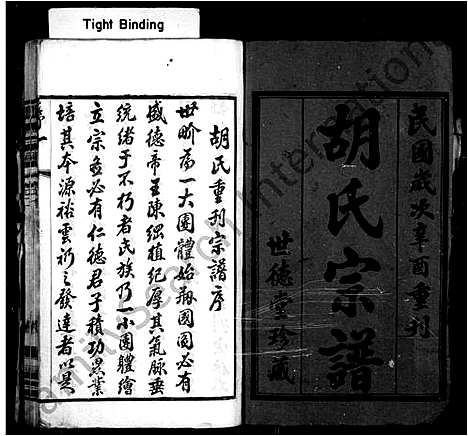 Tight Binding
民國歲次辛酉重刊
胡氏宗譜
世德堂珍藏
胡氏重刊宗譜序
世畍為一大團體始兩國國必有
盛德帝王陳綱植紀厚其氣脈垂
統緒于不朽者氏族乃一小團體繪
立宗彝必有仁德君子積功累業
培其本源裕雲礽之發達者以是